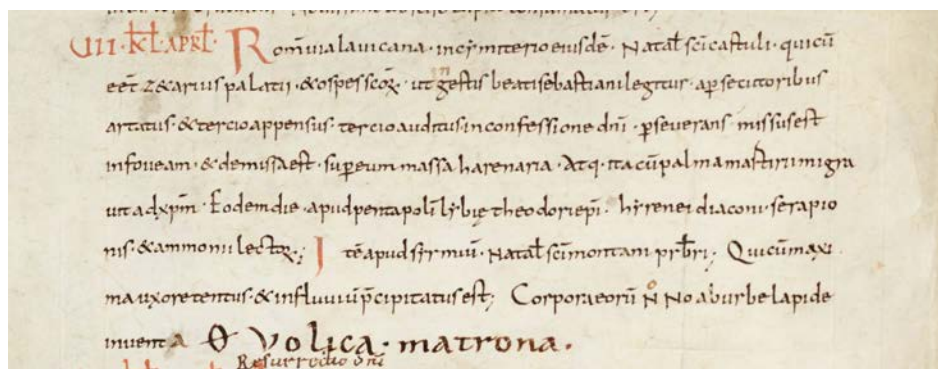 VII · kƚ · APRƚ · Rom̄ via lavicana · in cymiterio eiusdē · Nataƚ sc̄i castuli · qui cū
eēt z&arius palatii · & ospes sc̄oꝝ · ut in gestis beati sebastiani legitur · a ꝑsecutoribus
artatus · & tercio appensus · tercio auditus in confessione dn̄i · ꝑseverans missus est
in foveam · & demissa est · suꝑ eum massa harenaria · Atq · ita cū palma martirii migra
vit ad xp̄m · Eodem die · apud pentapolī lybię theodori ep̄i · hyrenei diaconi · serapio
nis · & ammonii lectoꝝ · ; Itē apud syrmiū · Nataƚ sc̄i montani prƀri ; Qui cū maxi
ma uxore tentus · & in fluviū p̄cipitatus est ; Corpora eorū N̊ No ab urbe lapide
inventa Θ Volica · matrona ·
Resurrectio dn̄i